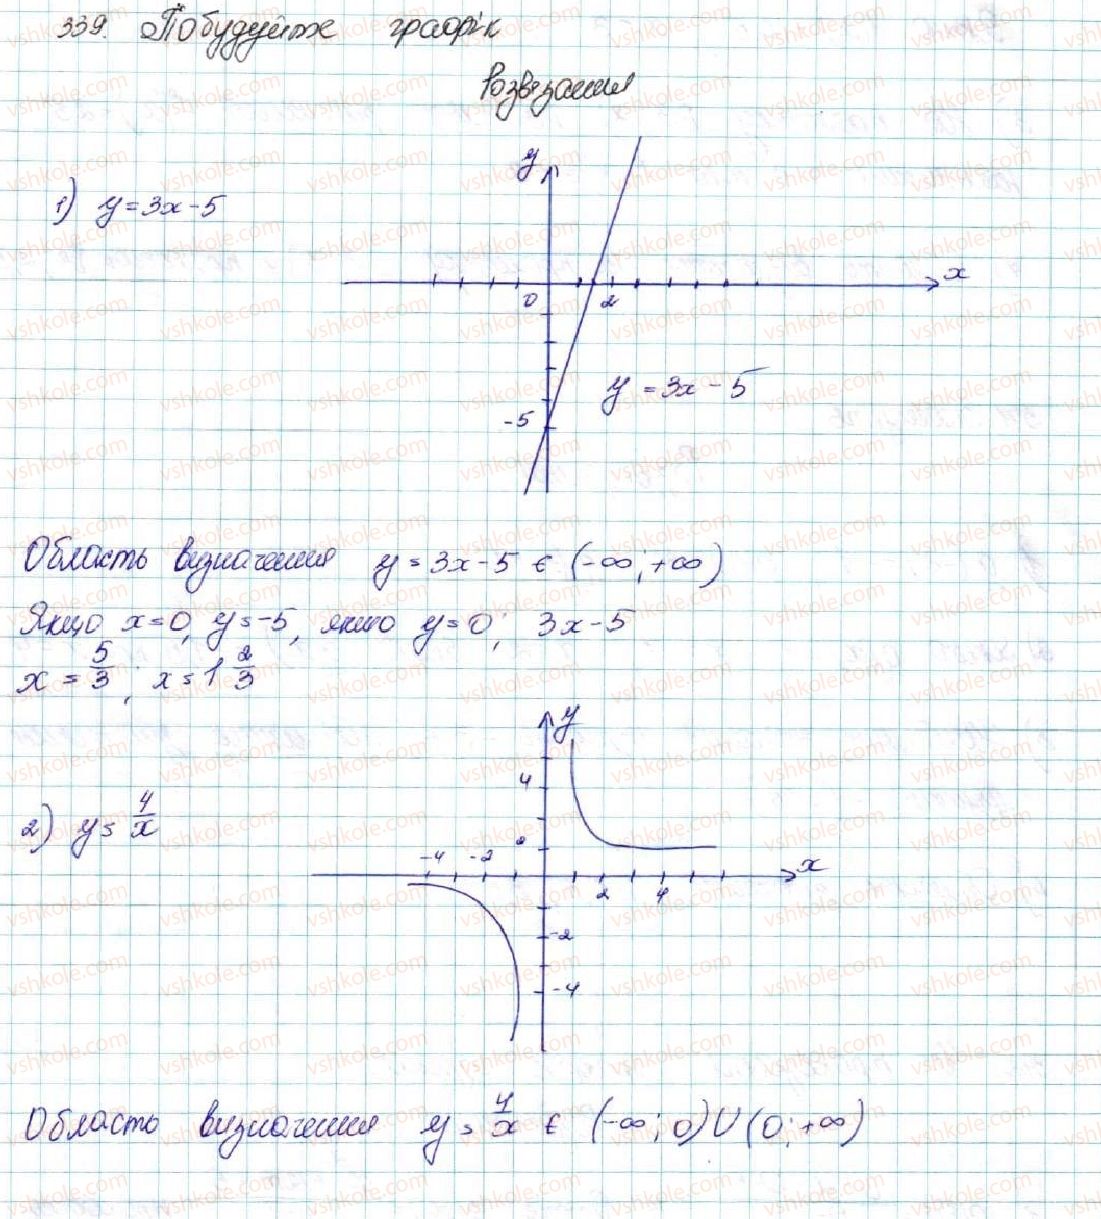 339. Побудуйте графік
Розвезання
1) y = 3x - 5
y
x
0
2
-5
y = 3x - 5
Область визначення y = 3x - 5 ∈ (-∞; +∞)
Якщо x = 0, y = -5, якщо y = 0; 3x - 5
x = 5/3; x = 1 2/3
2) y = 4/x
y
4
2
-4 -2
x
2 4
-2
-4
Область визначення y = 4/x ∈ (-∞; 0) U (0; +∞)